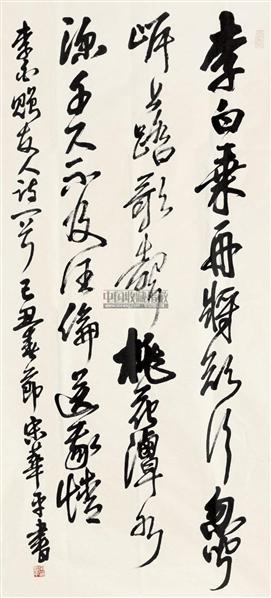 李白乘舟將欲行忽聞
岸上踏歌聲桃花潭水
深千尺不及汪倫送我情
李白贈友人詩一首己丑春節宋華平書